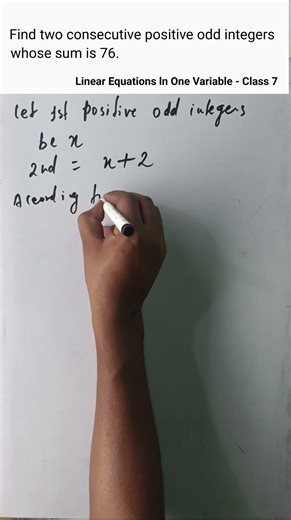 Find two consecutive positive odd integers
whose sum is 76.
Linear Equations In One Variable - Class 7
Let 1st positive odd integers
be x
2nd = x+2
According